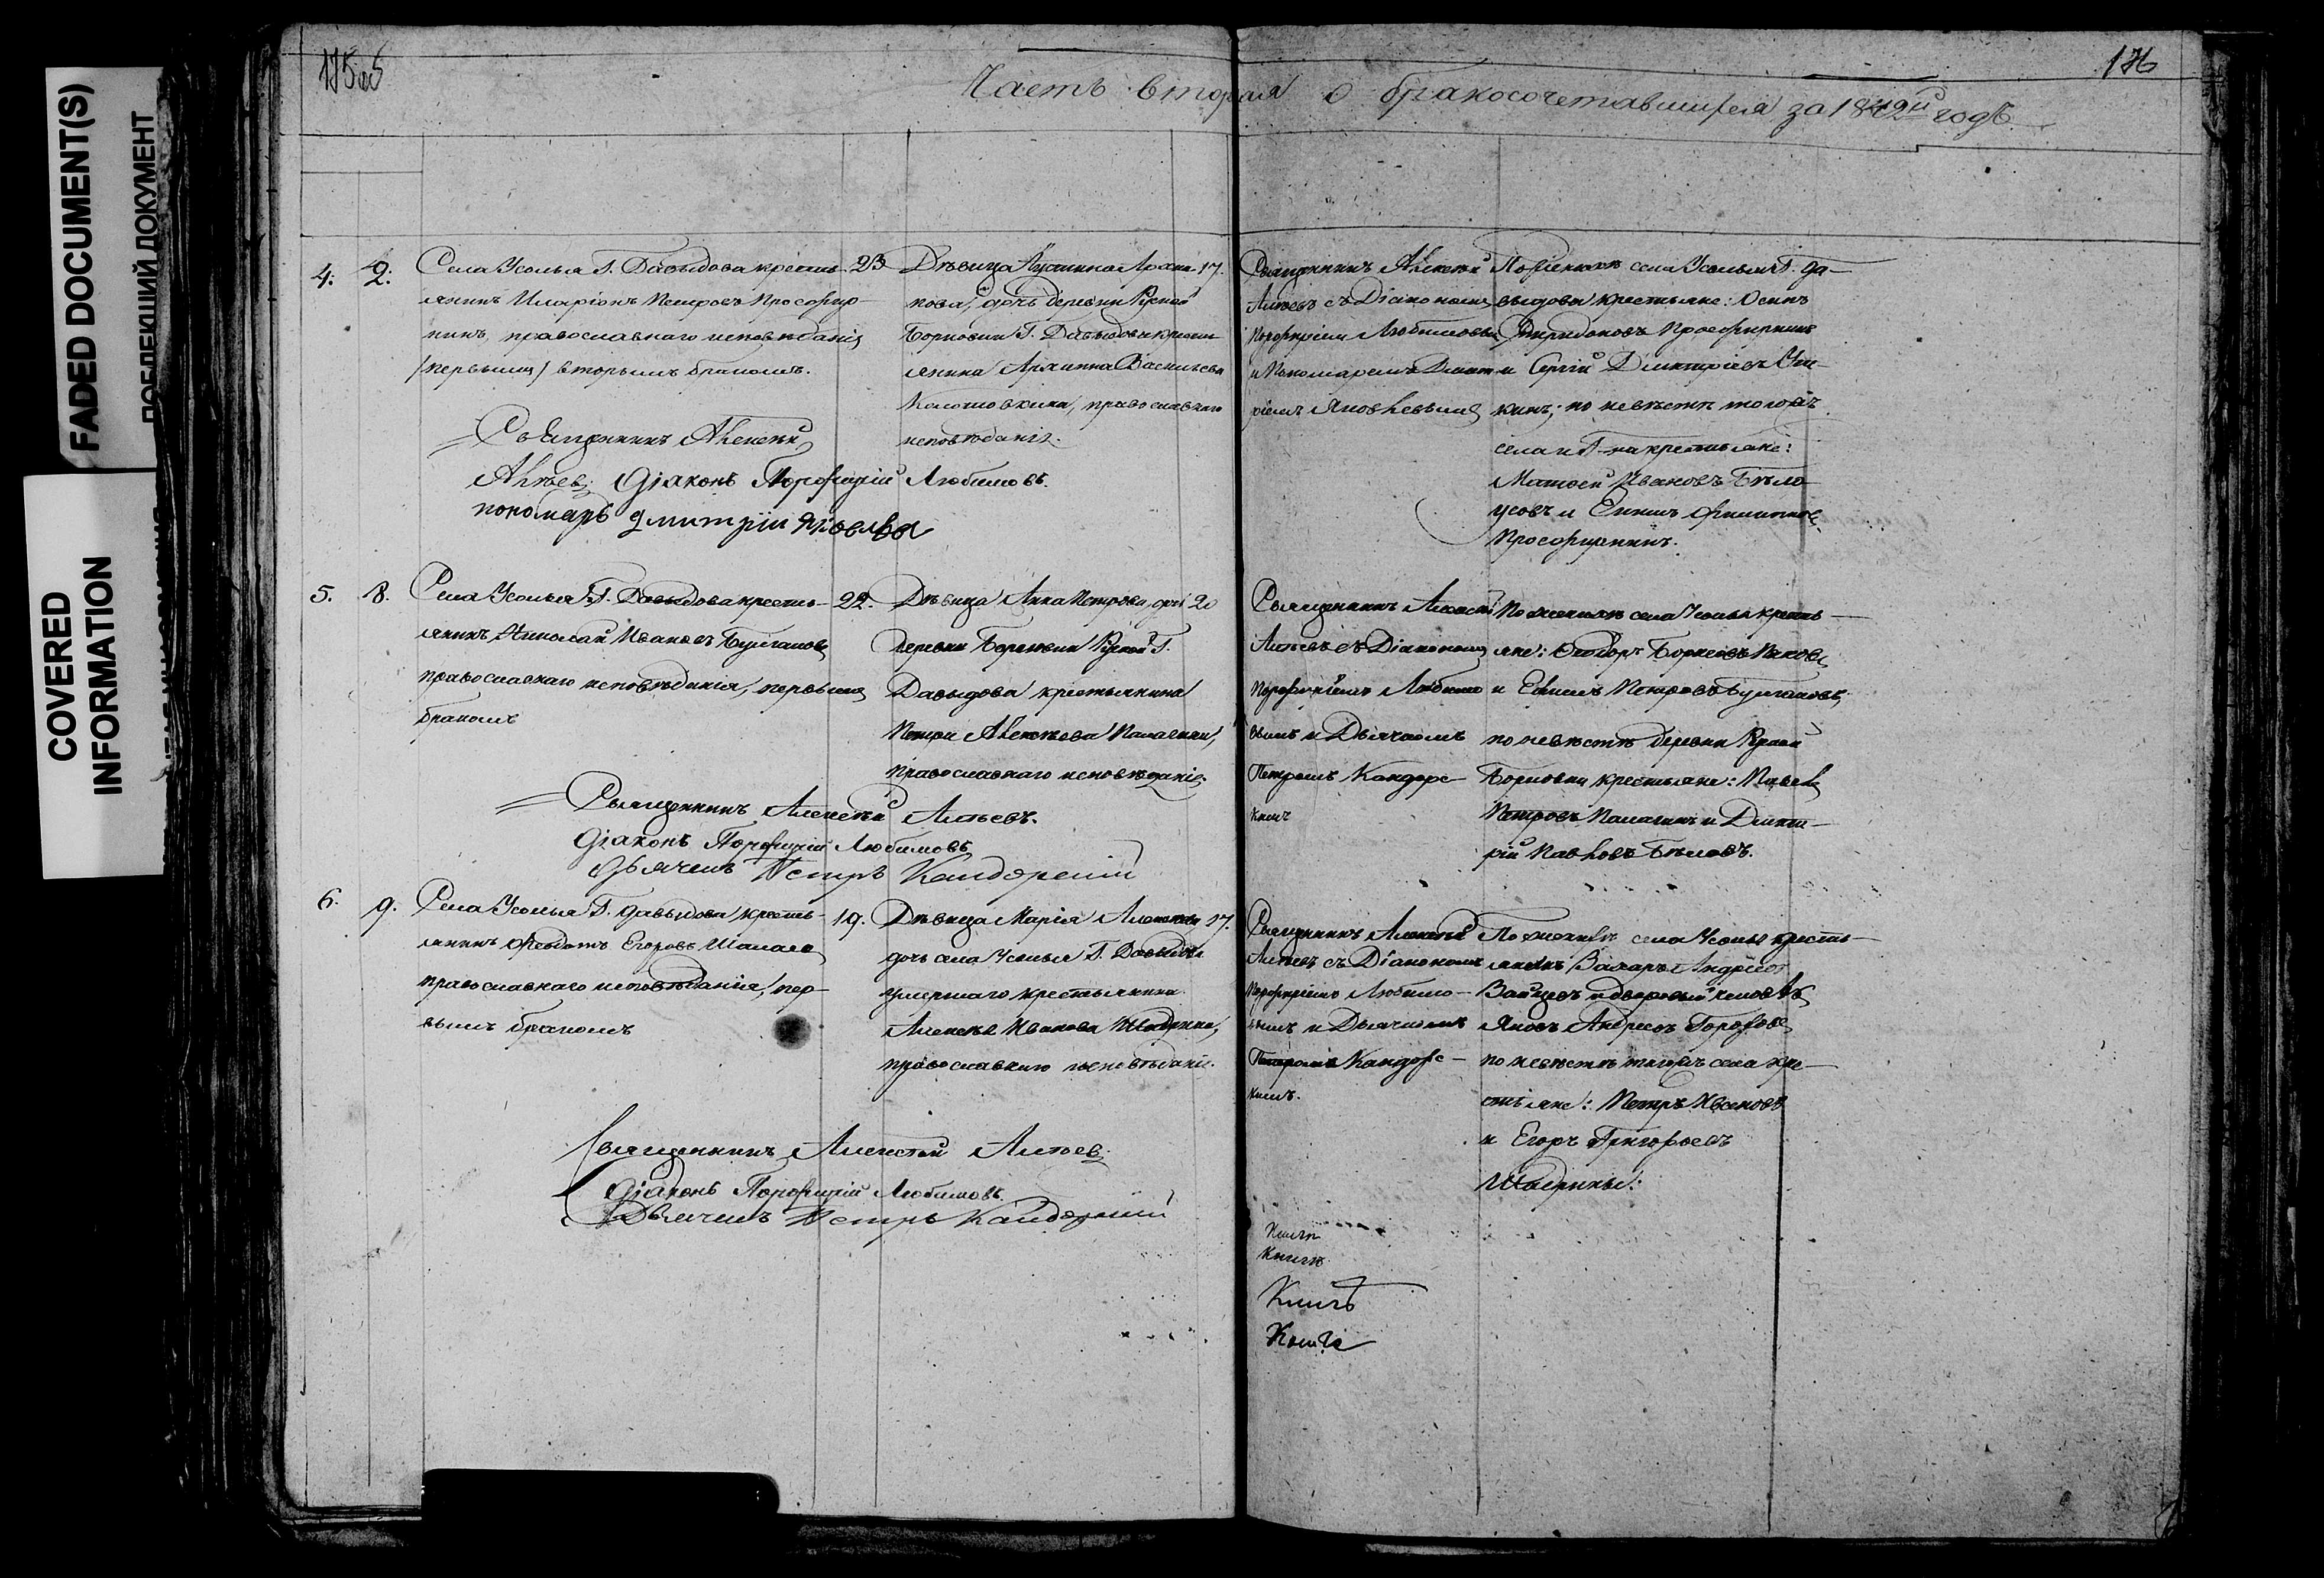 FADED DOCUMENT(S)
COVERED
INFORMATION
175 об
176
Часть вторая о бракосочетавшихся за 1842й годъ.
4. 2. Села Усолья Г. Давыдова кресть-
янинъ Иларіонъ Петровъ Просфир-
нинъ, православнаго исповѣданія
(первымъ) вторымъ бракомъ.
23
Дѣвица
дочь деревни Руской
Борковки Г. Давыдова кресть-
янина Архипа Васильева
православнаго
исповѣданія.
17.
Священникъ Алексѣй
Алѣевъ съ Діакономъ
Порфиріемъ Любимовымъ
и Пономаремъ Димит-
ріемъ Яковлевымъ
По женихѣ села Усолья Г. Да-
выдова крестьяне: Осипъ
Спиридоновъ Просфирнинъ
и Сергій Димитріевъ
по невѣстѣ тогожъ
села и Г-на крестьяне:
Матвей Ивановъ Бѣло-
усовъ и
Просфирнинъ.
Священникъ Алексѣй
Алѣевъ. Діаконъ Порфирій Любимовъ.
пономарь Дмитрій Яковлевъ
5. 8. Села Усолья Г. Давыдова кресть-
янинъ Николай Ивановъ Булгаковъ
православнаго исповѣданія, первымъ
бракомъ
22.
Дѣвица Анна Петрова, дочь
деревни Борковки Руской Г.
Давыдова крестьянина
Петра Алексѣева
православнаго исповѣданія.
20
Священникъ Алексѣй
Алѣевъ съ Діакономъ
Порфиріемъ Любимо-
вымъ и Дьячкомъ
Петромъ Кандорс-
кимъ
По женихѣ села Усолья кресть-
яне: Ѳедоръ
и Ефимъ Петровъ Булгаковъ,
по невѣстѣ деревни Руской
Борковки крестьяне: Павелъ
Петровъ и Димит-
рій Павловъ Бѣловъ.
Священникъ Алексѣй Алѣевъ.
Діаконъ Порфирій Любимовъ
Дьячекъ Петръ Кандорскій
6. 9. Села Усолья Г. Давыдова кресть-
янинъ Ѳеодотъ Егоровъ
православнаго исповѣданія, пер-
вымъ бракомъ
19.
Дѣвица Марія Алексѣева
дочь села Усолья Г. Давыдова
умершаго крестьянина
Алексѣя Иванова Шадрина,
православнаго исповѣданія.
17.
Священникъ Алексѣй
Алѣевъ съ Діакономъ
Порфиріемъ Любимо-
вымъ и Дьячкомъ
Петромъ Кандорс-
кимъ.
По женихѣ села Усолья кресть-
янинъ Захаръ Андреевъ
Зайцевъ и дворовый человѣкъ
Яковъ Андреевъ
по невѣстѣ тогожъ села кре-
стьяне: Петръ Ивановъ
и Егоръ Григорьевъ
Шадрины.
Священникъ Алексѣй Алѣевъ
Діаконъ Порфирій Любимовъ
Дьячекъ Петръ Кандорскій